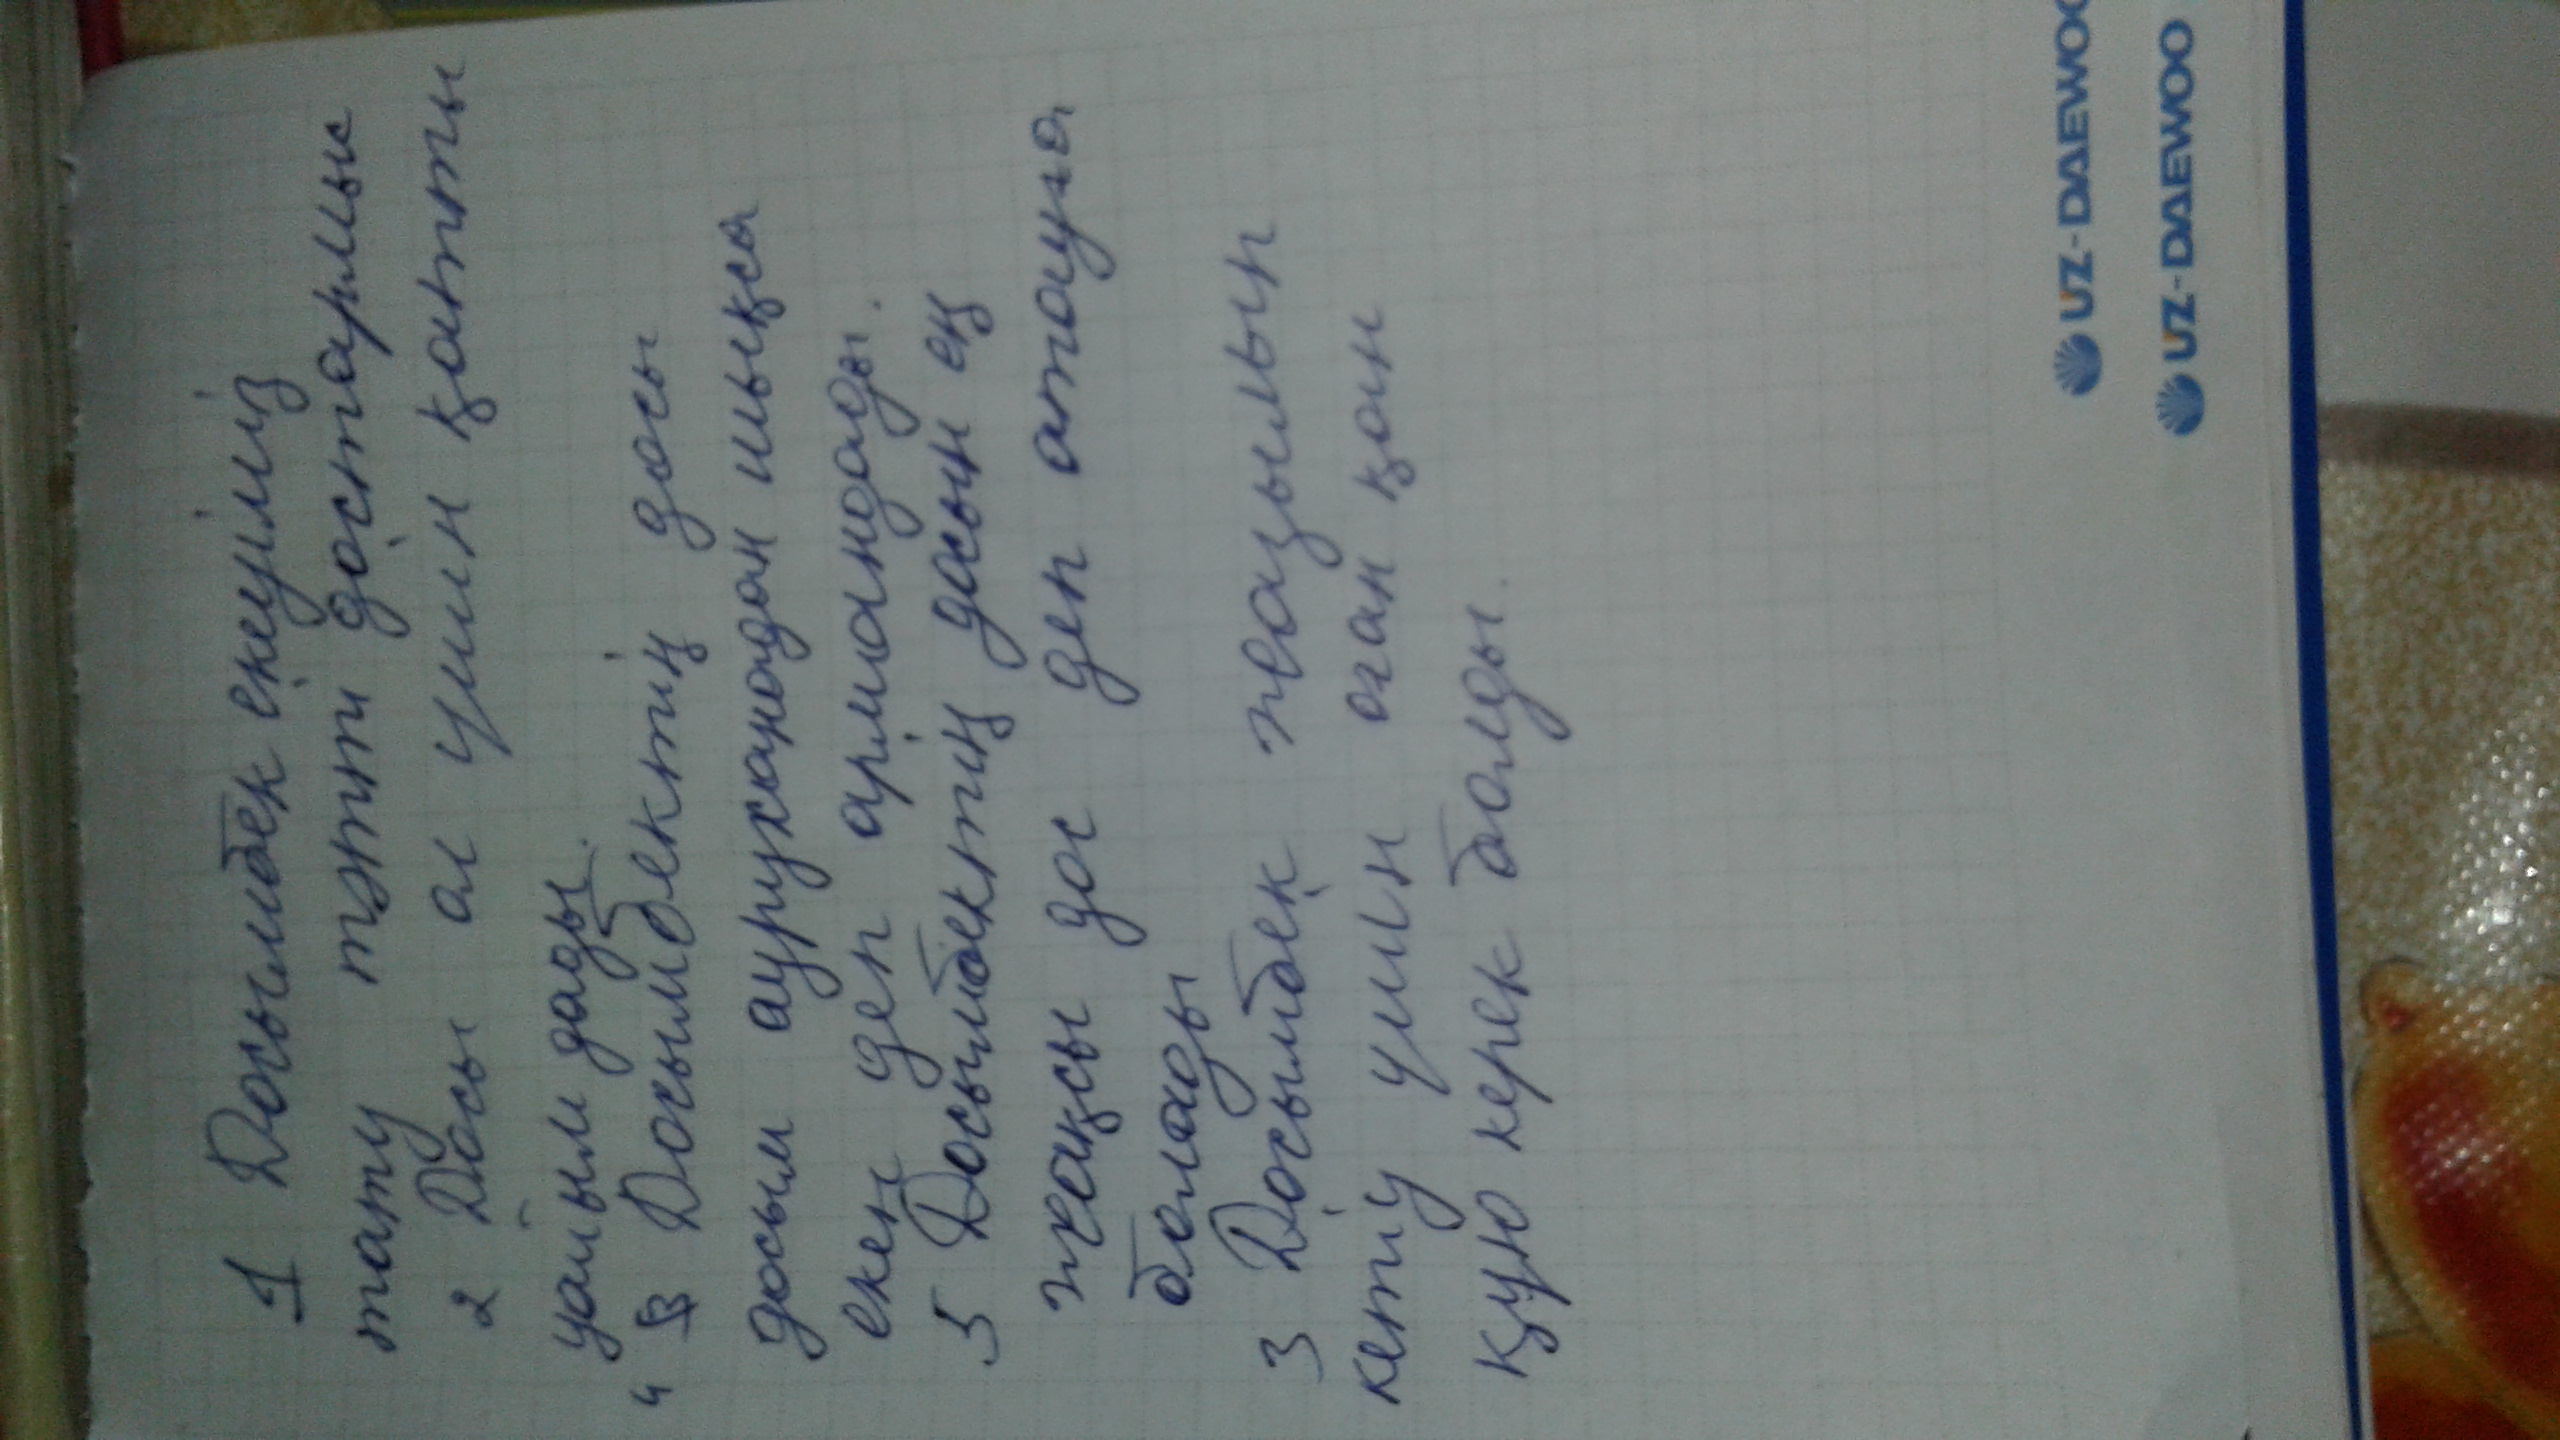 1 Досымбек екеуіміз
тату тәтті достармыз
2 Досы ол үшин қатты
уайымдады.
4 Досымбектің досы
досым ауруханадан шықса
екен деп армандады.
5 Досымбектиң досын ең
жақсы дос деп атауға
болады
3 Досымбек жазылып
кетіу үшин оған қан
құю керек болды.
UZ-DAEWOO
UZ-DAEWOO